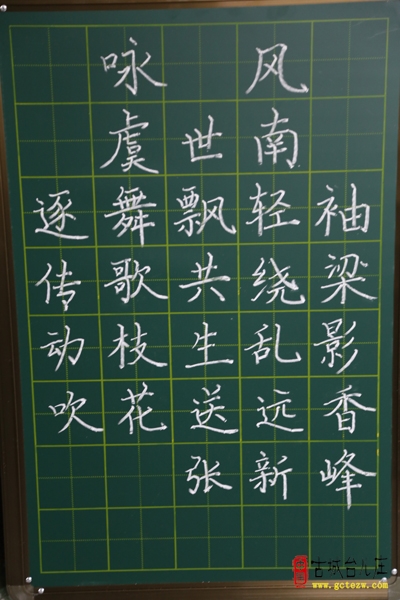 咏风
虞世南
逐舞飘轻袖
传歌共绕梁
动枝生乱影
吹花送远香
张新峰
古城台儿庄
www.gctezw.com